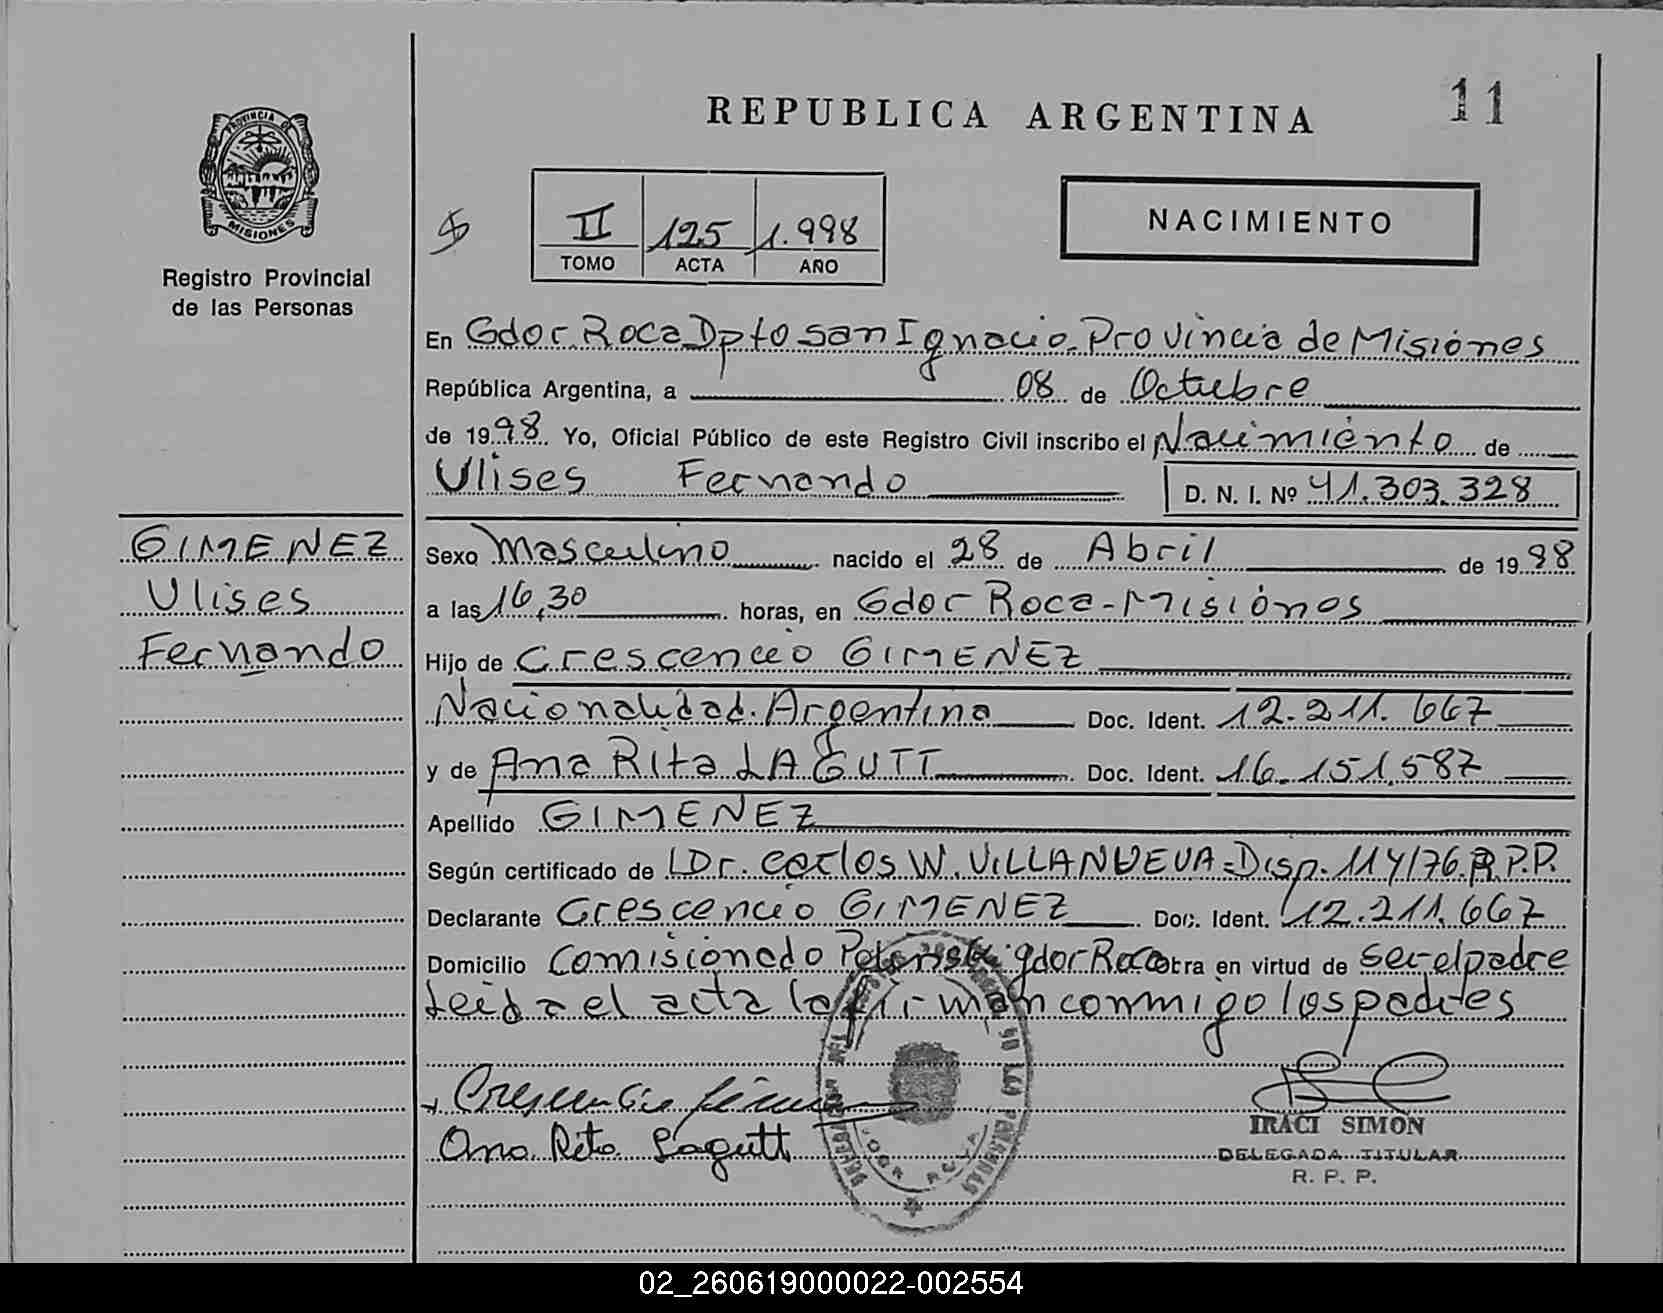 REPUBLICA ARGENTINA
11
PROVINCIA DE
MISIONES
Registro Provincial
de las Personas
II 125 1.998
TOMO ACTA AÑO
NACIMIENTO
En Gdor. Roca Dpto San Ignacio. Provincia de Misiones
República Argentina, a 08 de Octubre
de 1998. Yo, Oficial Público de este Registro Civil inscribo el Nacimiento de
Ulises Fernando D. N. I. Nº 41.303.328
GIMENEZ
Ulises
Fernando
Sexo Masculino nacido el 28 de Abril de 1998
a las 16,30 horas, en Gdor Roca - Misiones
Hijo de Crescencio GIMENEZ
Nacionalidad. Argentina Doc. Ident. 12.211.667
y de Ana Rita LAGUTT Doc. Ident. 16.151.587
Apellido GIMENEZ
Según certificado de Dr. Carlos W. VILLANUEVA = Disp. 114/76. R.P.P.
Declarante Crescencio GIMENEZ Doc. Ident. 12.211.667
Domicilio Comisionado gdor Roca Obra en virtud de ser el padre
Leida el acta la firman conmigo los padres
Crescencio
Ana Rita Lagutt
IRACI SIMON
DELEGADA TITULAR
R. P. P.
02_260619000022-002554